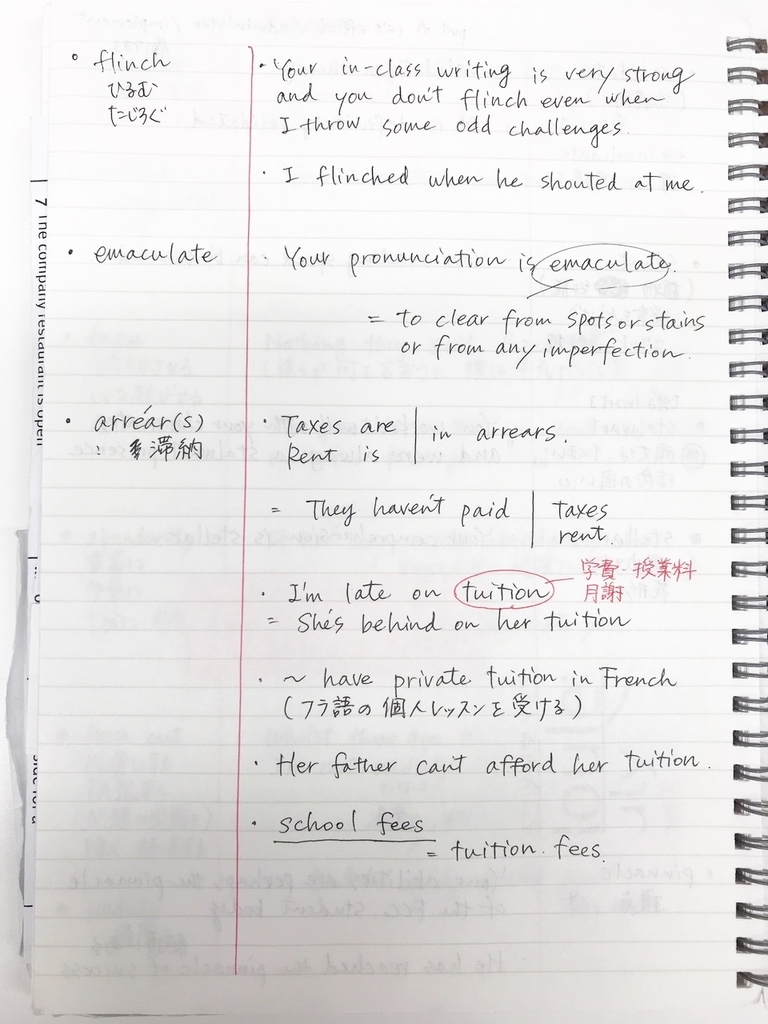 • flinch
ひるむ
たじろぐ
• Your in-class writing is very strong
and you don't flinch even when
I throw some odd challenges.
• I flinched when he shouted at me.
• emaculate
• Your pronunciation is emaculate.
= to clear from spots or stains
or from any imperfection.
• arréar(s)
滞納
• Taxes are | in arrears.
Rent is
= They haven't paid | taxes
rent.
• I'm late on tuition
学費・授業料
月謝
= She's behind on her tuition
• ~ have private tuition in French
(フラ語の個人レッスンを受ける)
• Her father can't afford her tuition.
• school fees
= tuition fees.
7 The company restaurant is open